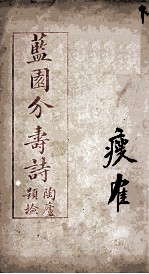 藍園分壽詩
陶廬
題檢
瘦